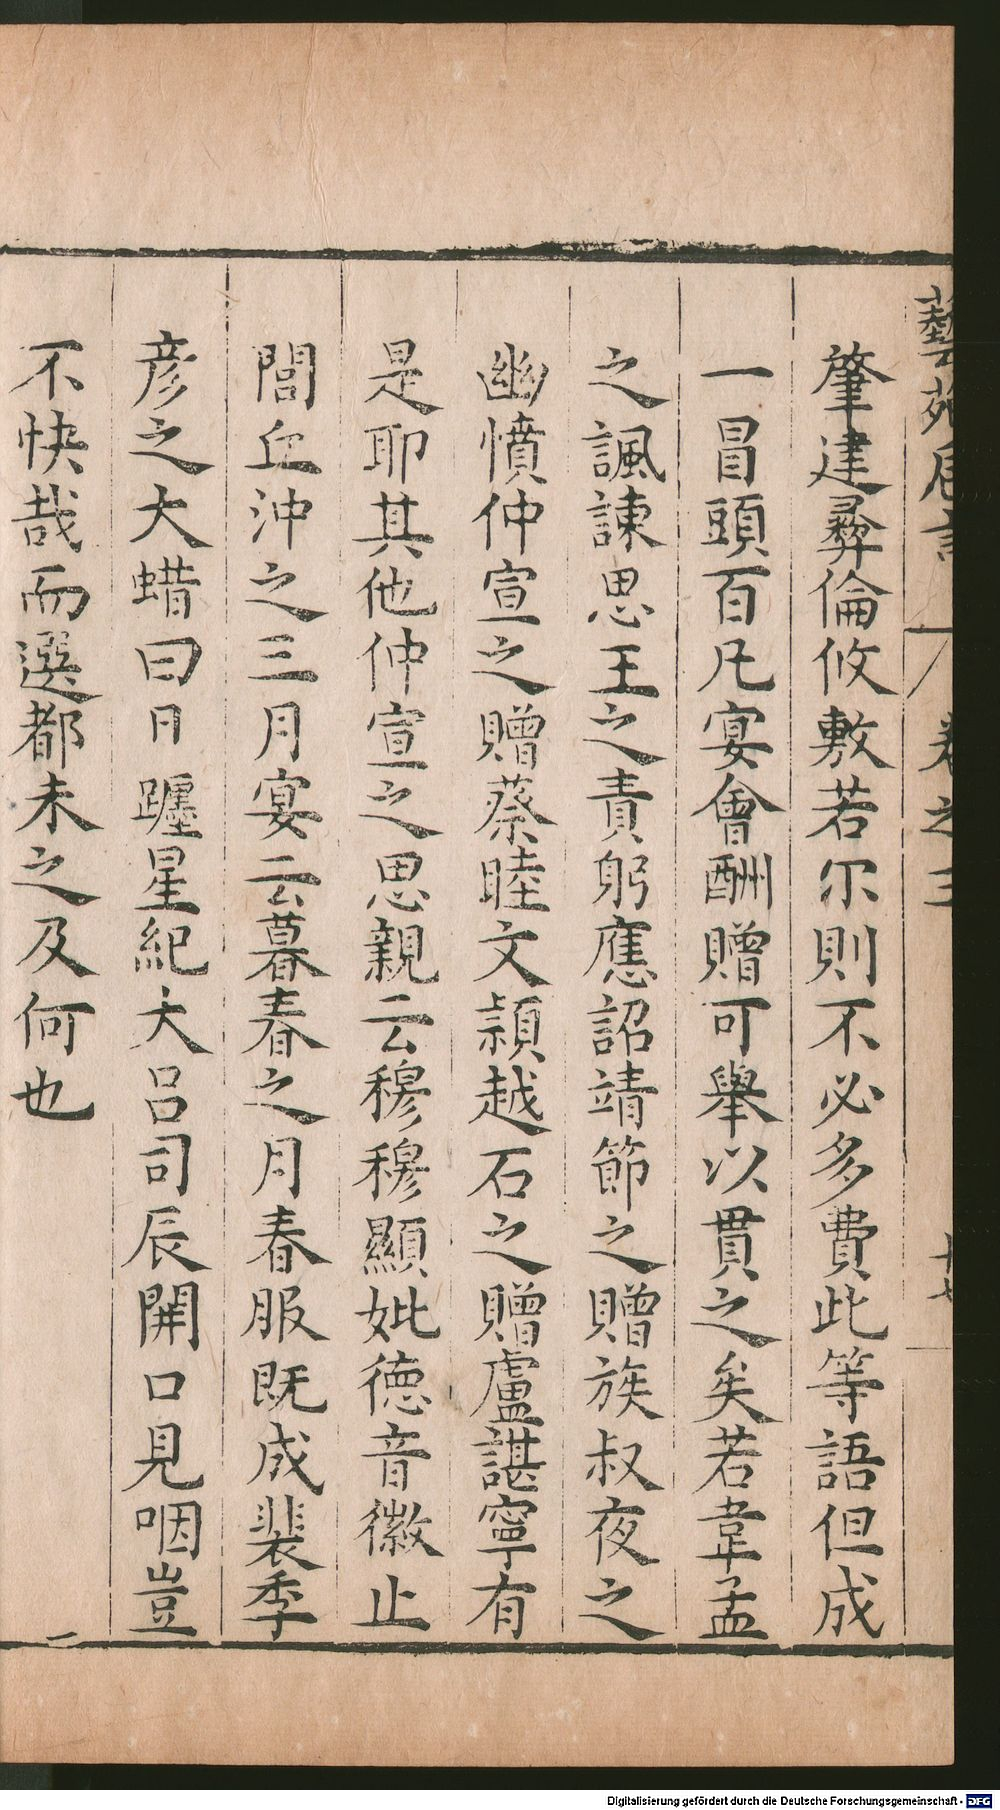 藝苑卮言 卷之三 十七
肇建彛倫攸敷若尔則不必多費此等語但成
一冒頭百凡宴會酬贈可舉以貫之矣若韋孟
之諷諫思王之責躬應詔靖節之贈族叔夜之
幽憤仲宣之贈蔡睦文頴越石之贈盧諶寧有
是耶其他仲宣之思親云穆穆顯妣德音徽止
閭丘沖之三月宴云暮春之月春服既成裴季
彥之大蜡曰日躔星紀大呂司辰開口見咽豈
不快哉而選都未之及何也
Digitalisierung gefördert durch die Deutsche Forschungsgemeinschaft - DFG